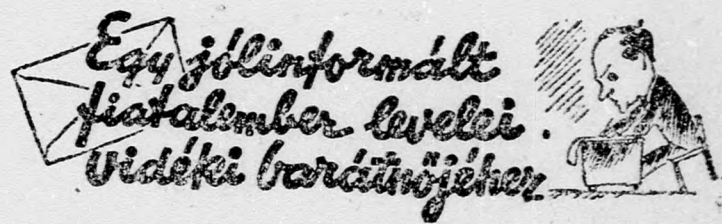 Egy jólinformált
fiatalember levelei
vidéki barátnőjéhez